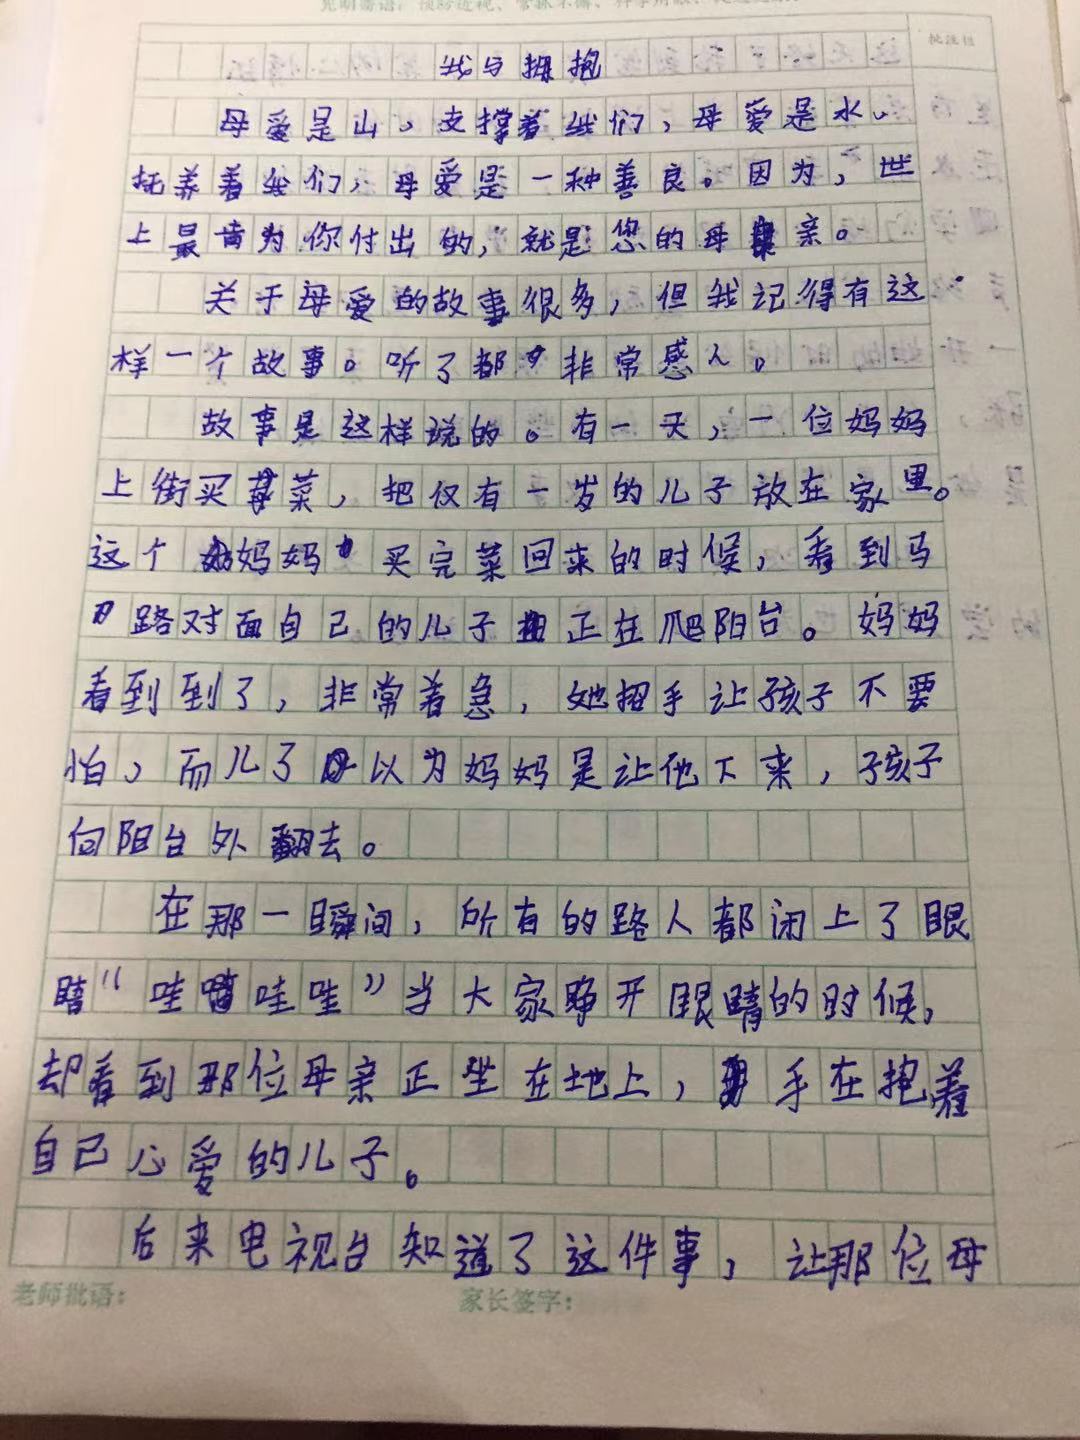 批注栏
我与拥抱
母爱是山，支撑着我们，母爱是水，
抚养着我们，母爱是一种善良。因为，世
上最肯为你付出的，就是您的母亲。
关于母爱的故事很多，但我记得有这
样一个故事。听了都非常感人。
故事是这样说的。有一天，一位妈妈
上街买菜，把仅有一岁的儿子放在家里。
这个妈妈买完菜回来的时候，看到马
路对面自己的儿子正在爬阳台。妈妈
看到到了，非常着急，她招手让孩子不要
怕，而儿子以为妈妈是让他下来，孩子
向阳台外翻去。
在那一瞬间，所有的路人都闭上了眼
睛“哇哇哇”当大家睁开眼睛的时候，
却看到那位母亲正坐在地上，手在抱着
自己心爱的儿子。
后来电视台知道了这件事，让那位母
老师批语：
家长签字：